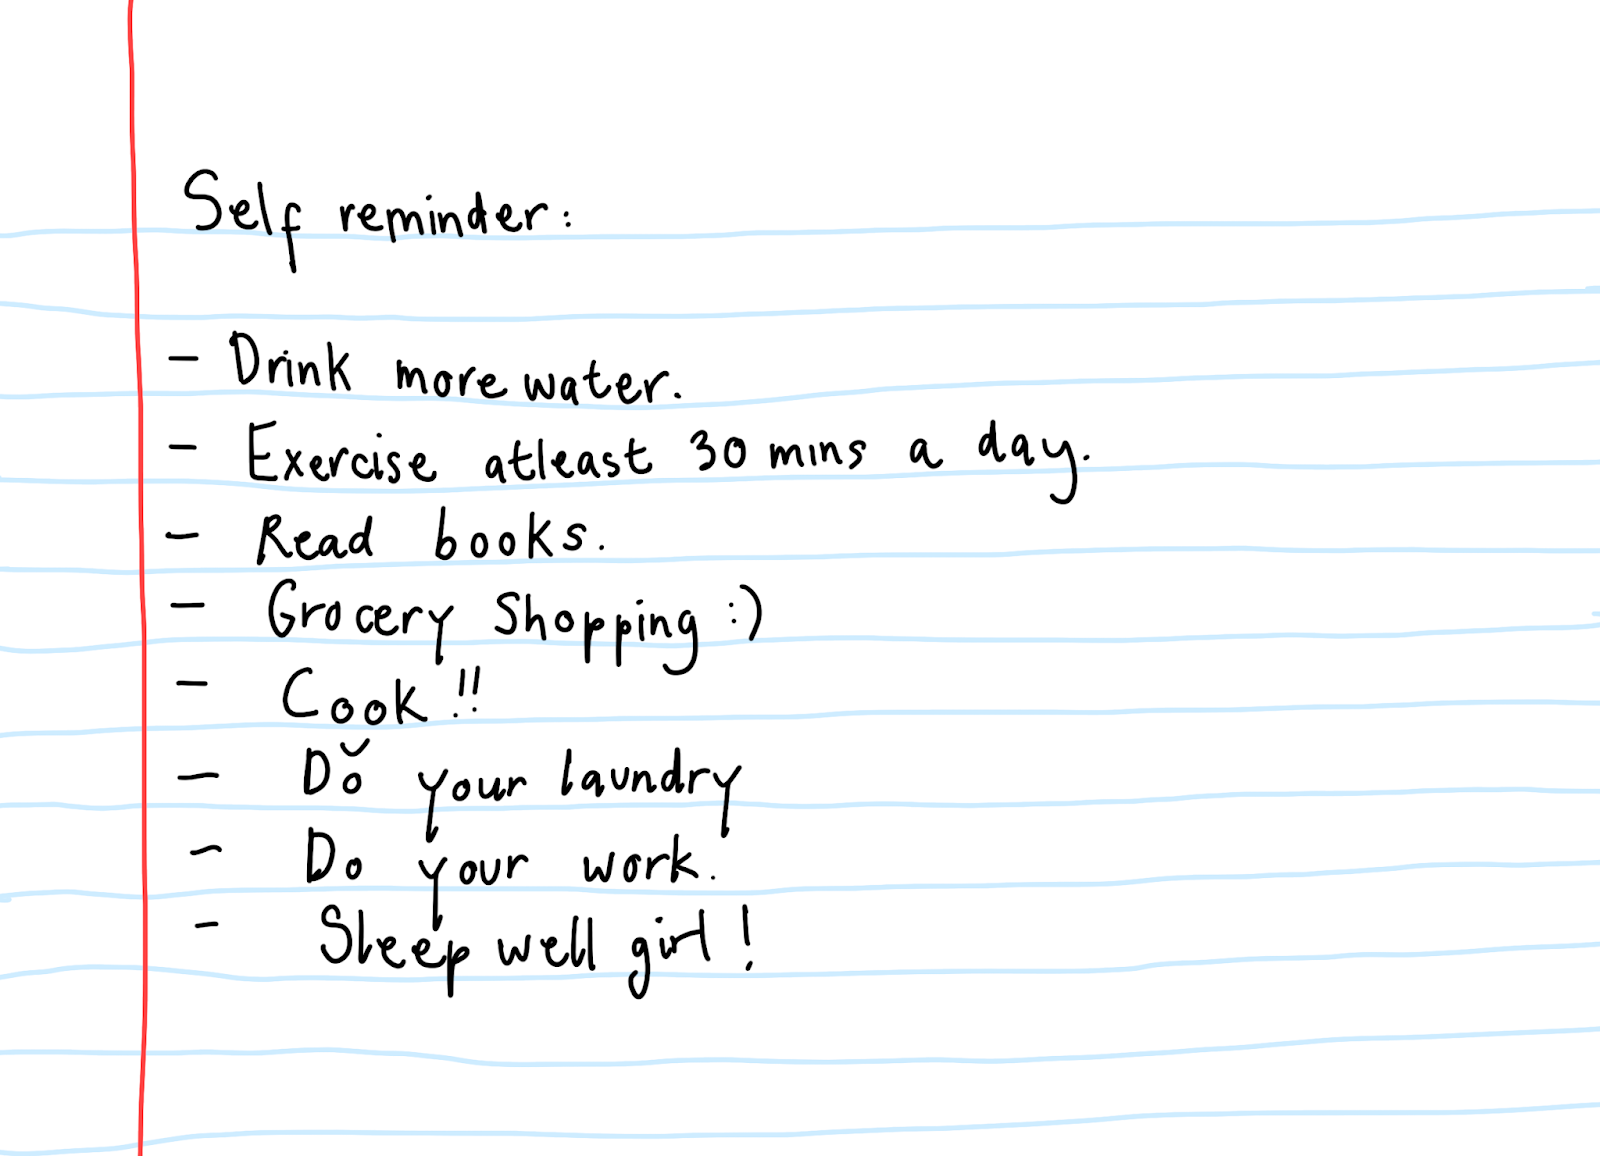 Self reminder:
- Drink more water.
- Exercise atleast 30 mins a day.
- Read books.
- Grocery Shopping :)
- Cook!!
- Dǒ your laundry
- Do your work.
- Sleep well girl!